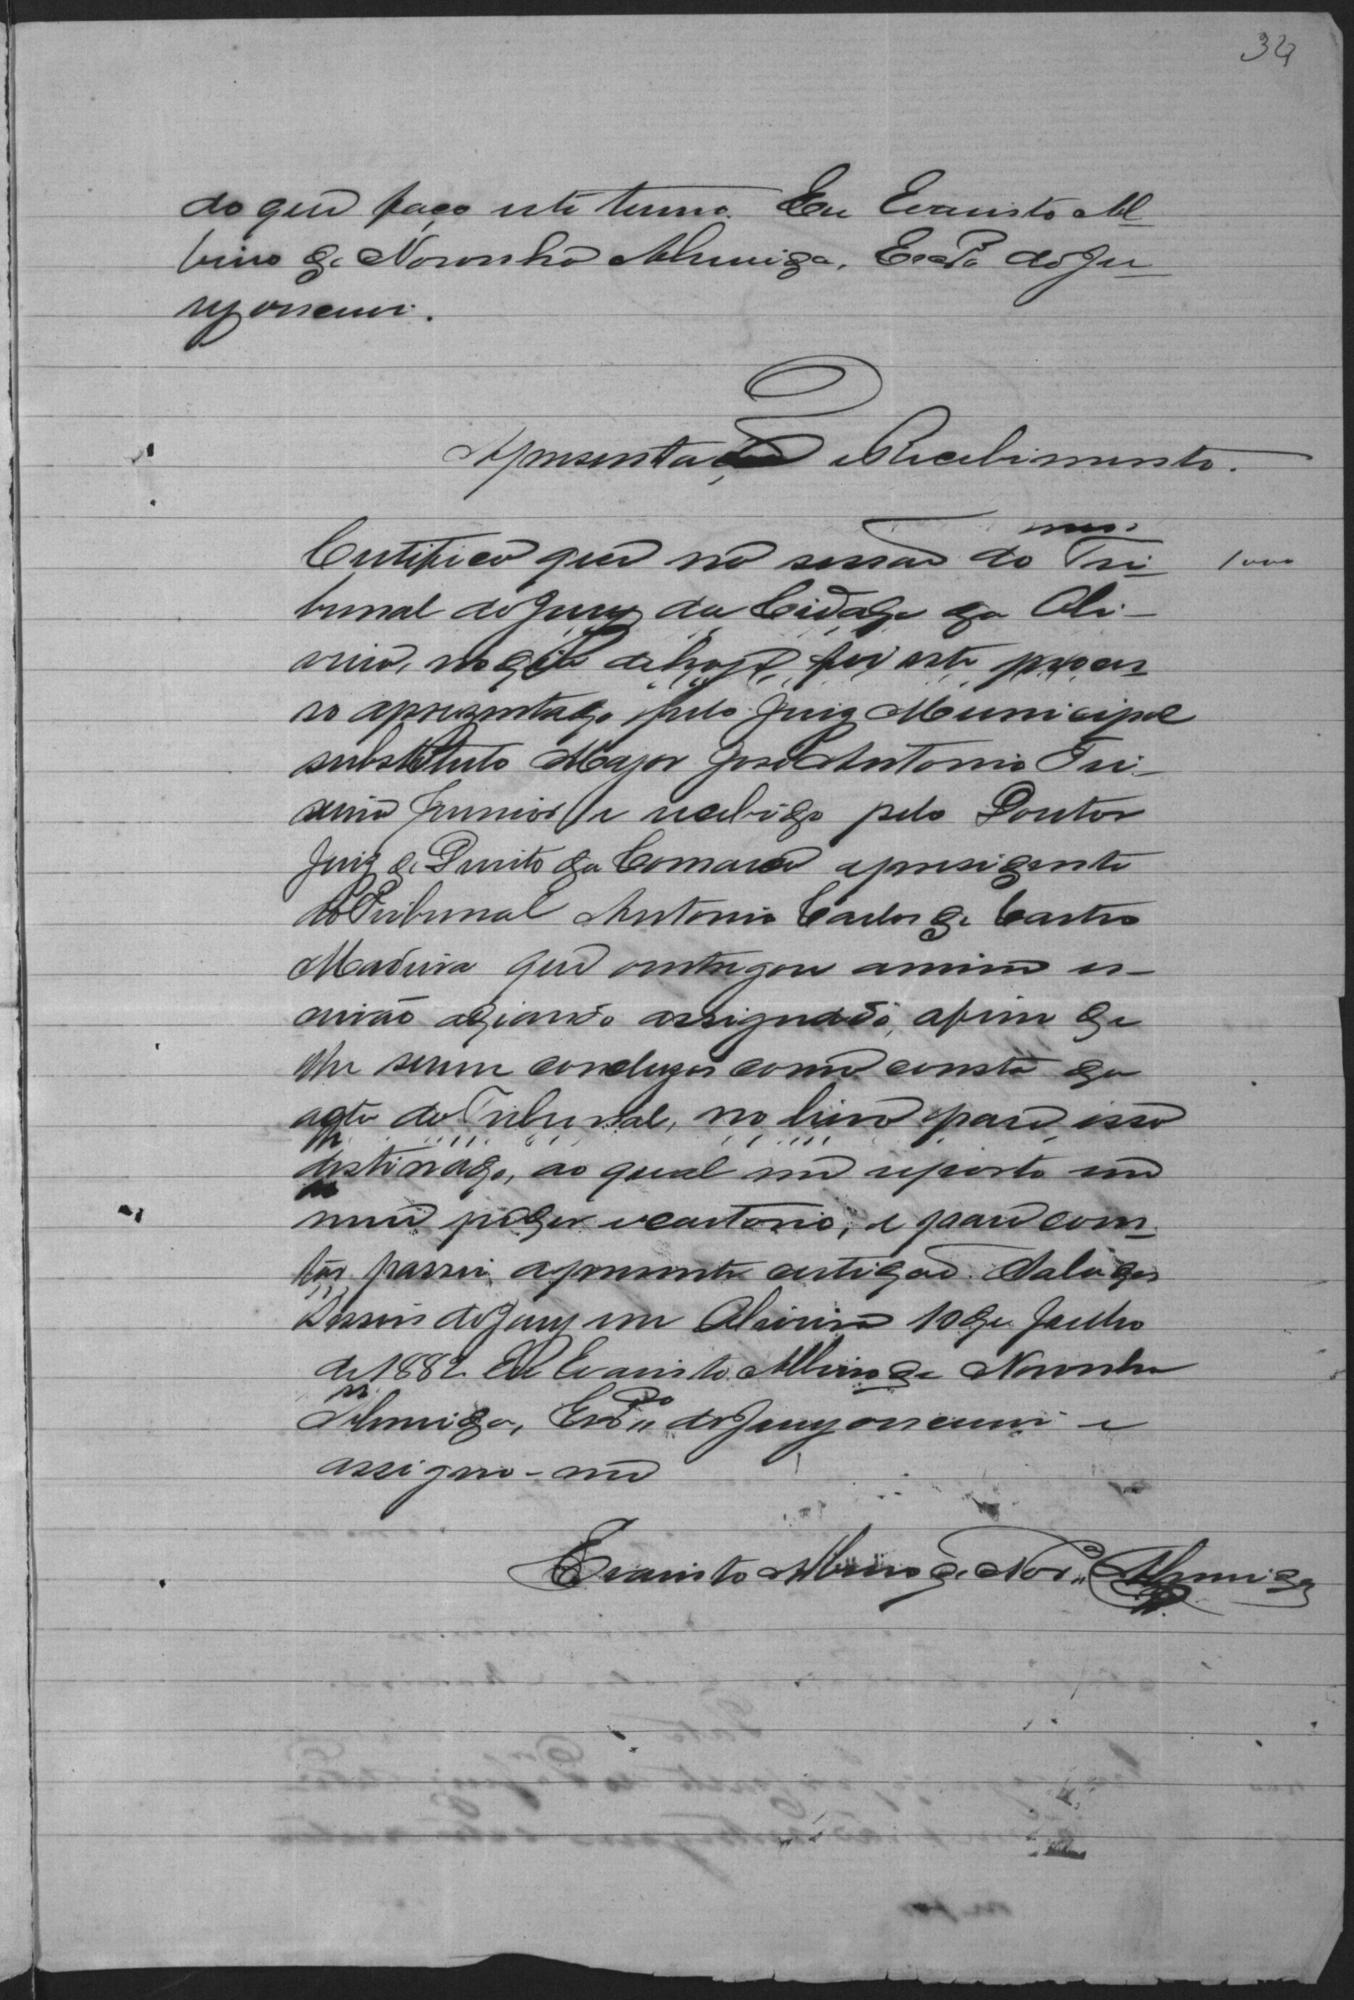 34
do que faço este termo. Eu Evaristo Al-
bino de Noronha Almeida, Escrm do Ju-
ry o escrevi.
Apresentação e Recebimento.
Certifico que na sessão do Tri- 1000
bunal do Jury da Cidade da Oli-
veira, no dia de hoje, foi este proces-
so aprezentado pelo Juiz Municipal
substituto Major José Antonio Tei-
xeira Junior, e recebido pelo Doutor
Juiz de Direito da Comarca e presidente
do Tribunal Antonio Carlos de Castro
Madeira que entregou a mim es-
crivão adiante assignado, afim de
lhe serem concluzos como consta da
acta do Tribunal, no livro para isso
destinado, ao qual me reporto em
meu poder e cartorio, e para cons-
tar passei a presente certidão. Sala das
Sessões do Jury em Oliveira 10 de Julho
de 1882. Eu Evaristo Albino de Noronha
Almeida, do Jury o escrevi e
assigno-me
Evaristo Albino de Nor.ª Almeida